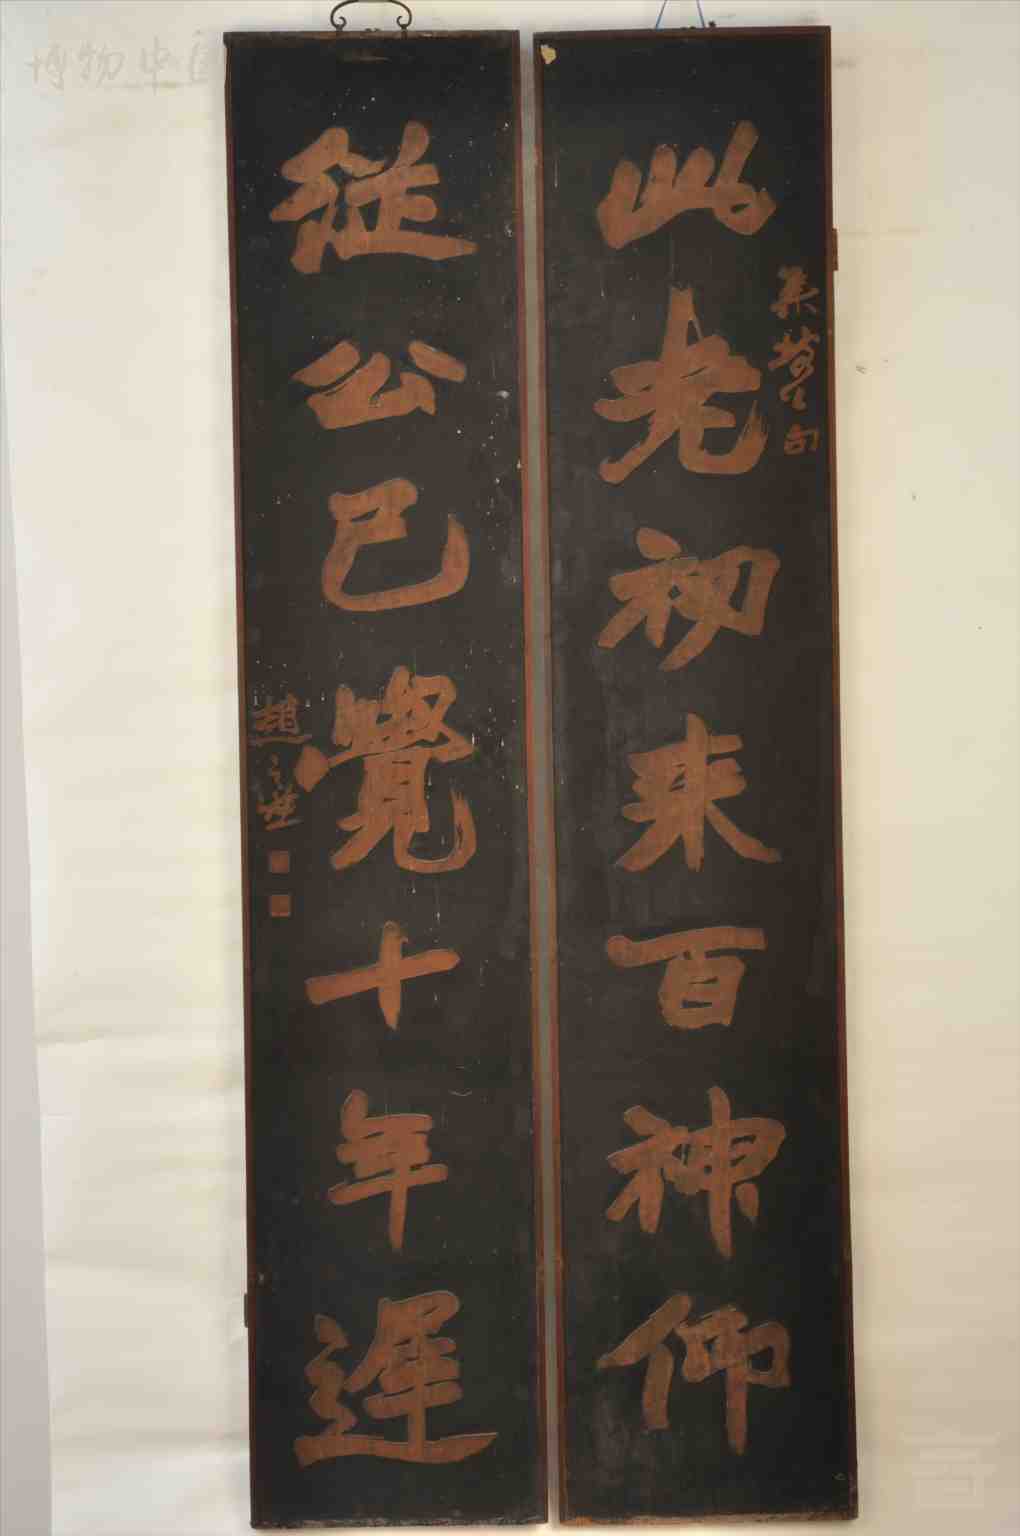 此老初来百神仰
集坡公句
從公已覺十年遲
趙之謙
博物中国